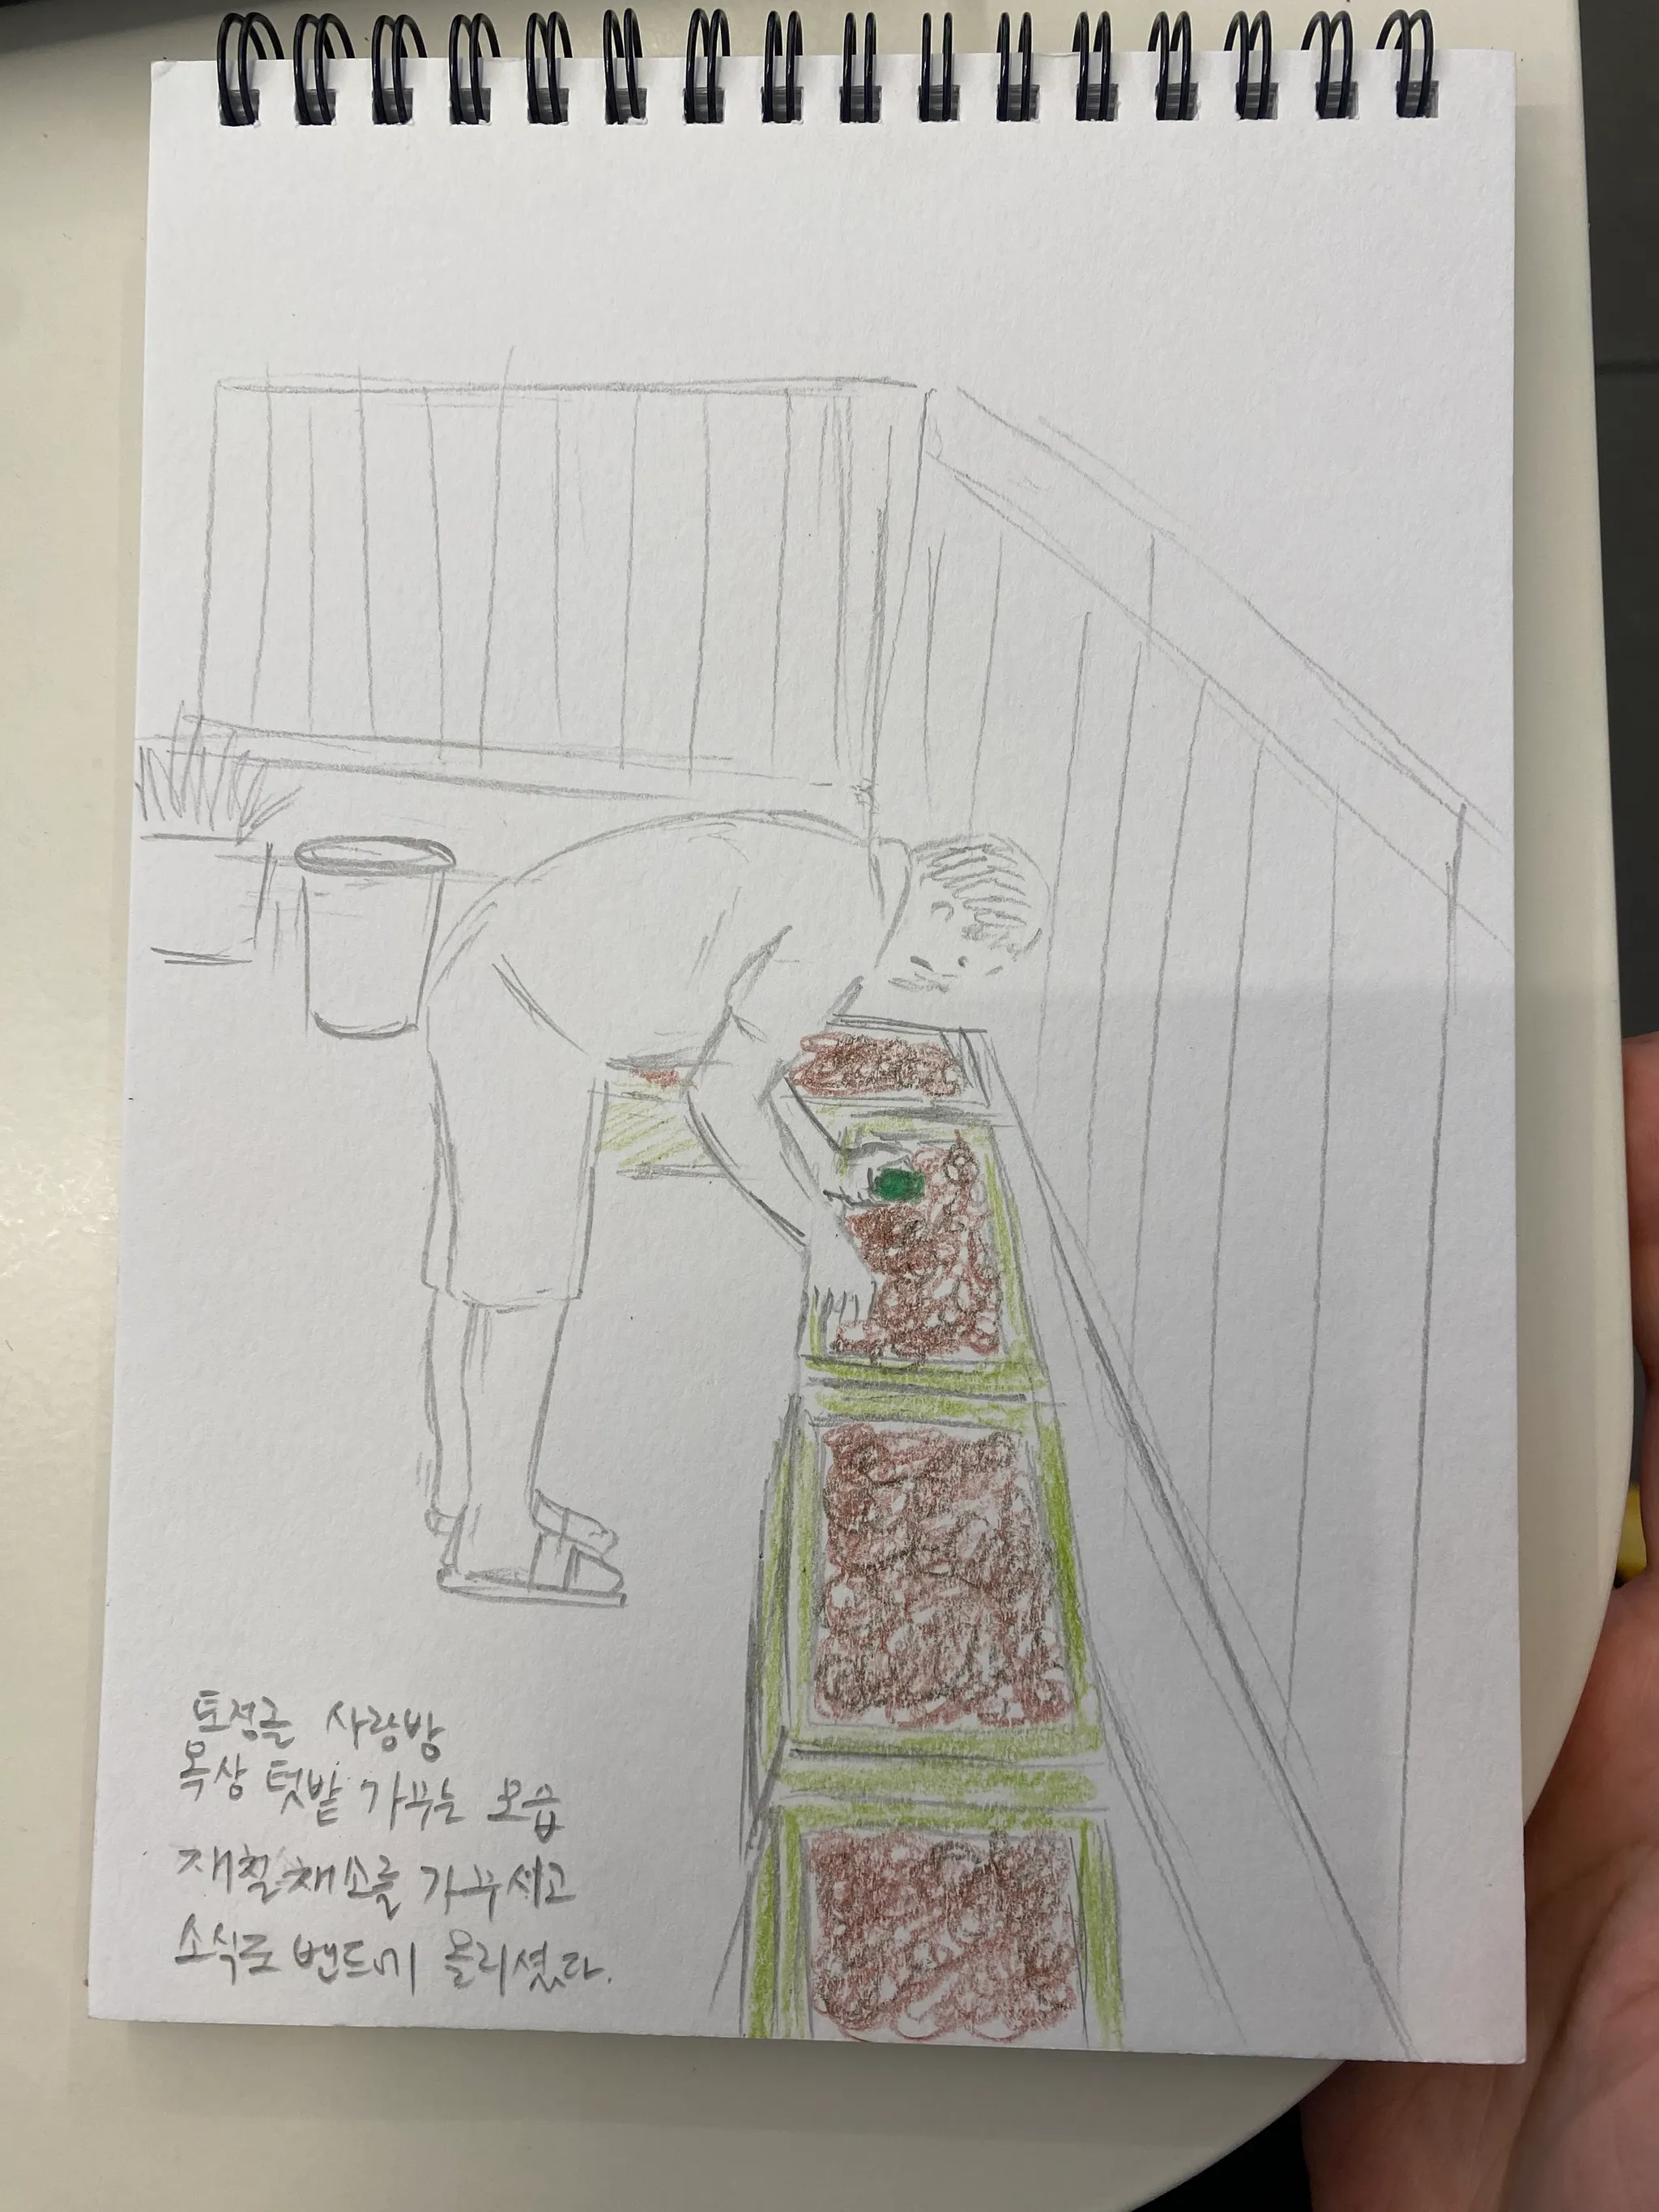 토정골 사랑방
옥상 텃밭 가꾸는 모습
재철채소를 가꾸시고
소식로 밴드에 올리셨다.